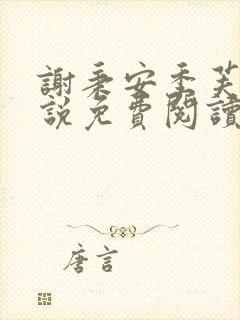 謝秉安季芙
說免費閱讀
唐言